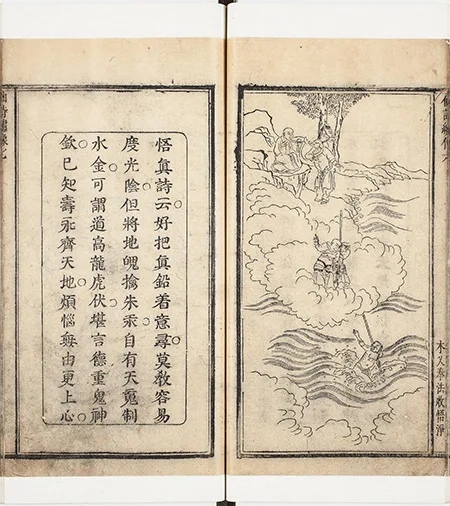 木叉奉法收悟淨
悟真詩云好把真鉛着意尋莫教容易
度光陰但將地魄擒朱汞自有天魂制
水金可謂道高龍虎伏堪言德重鬼神
欽已知壽永齊天地煩惱無由更上心